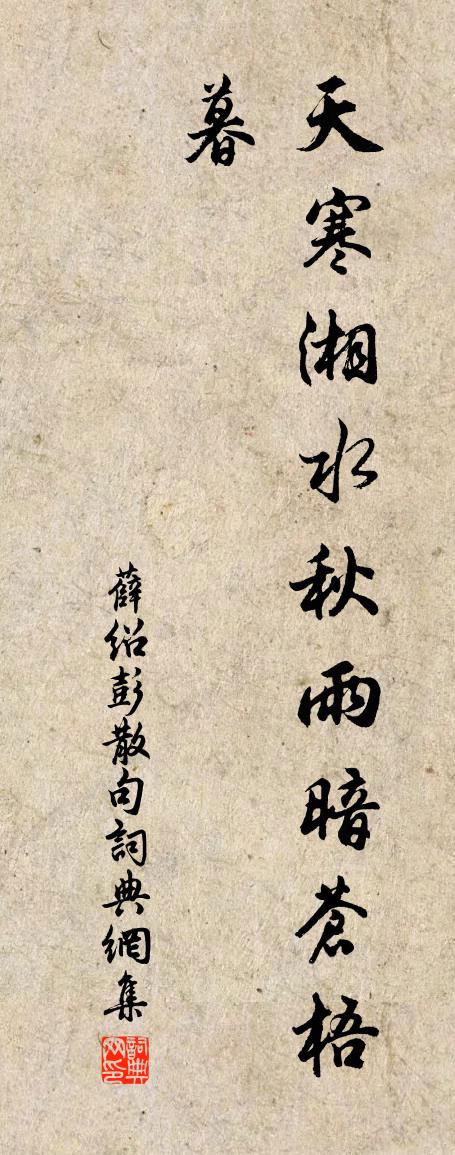 天寒湘水秋雨暗蒼梧
暮
薛紹彭散句詞典網集
詞典
网印